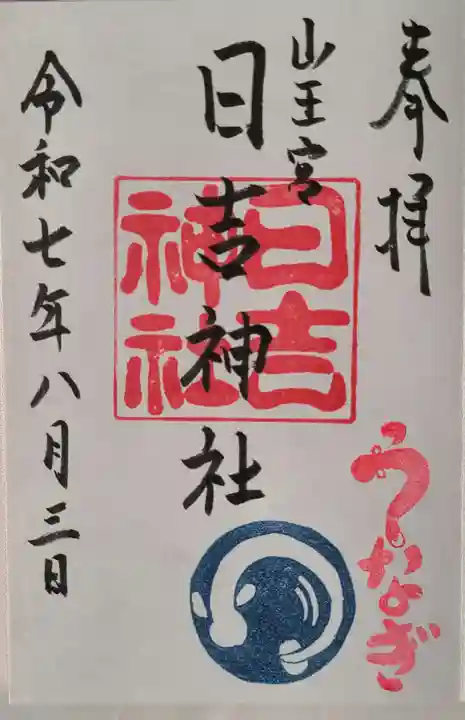 奉拝
山王宮
日吉神社
日吉神社
うなぎ
令和七年八月三日